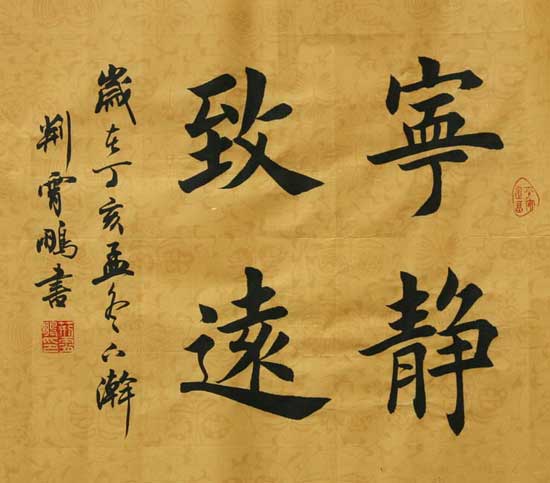 寧静
致遠
歲在丁亥孟冬瀚
荆霄鵬書